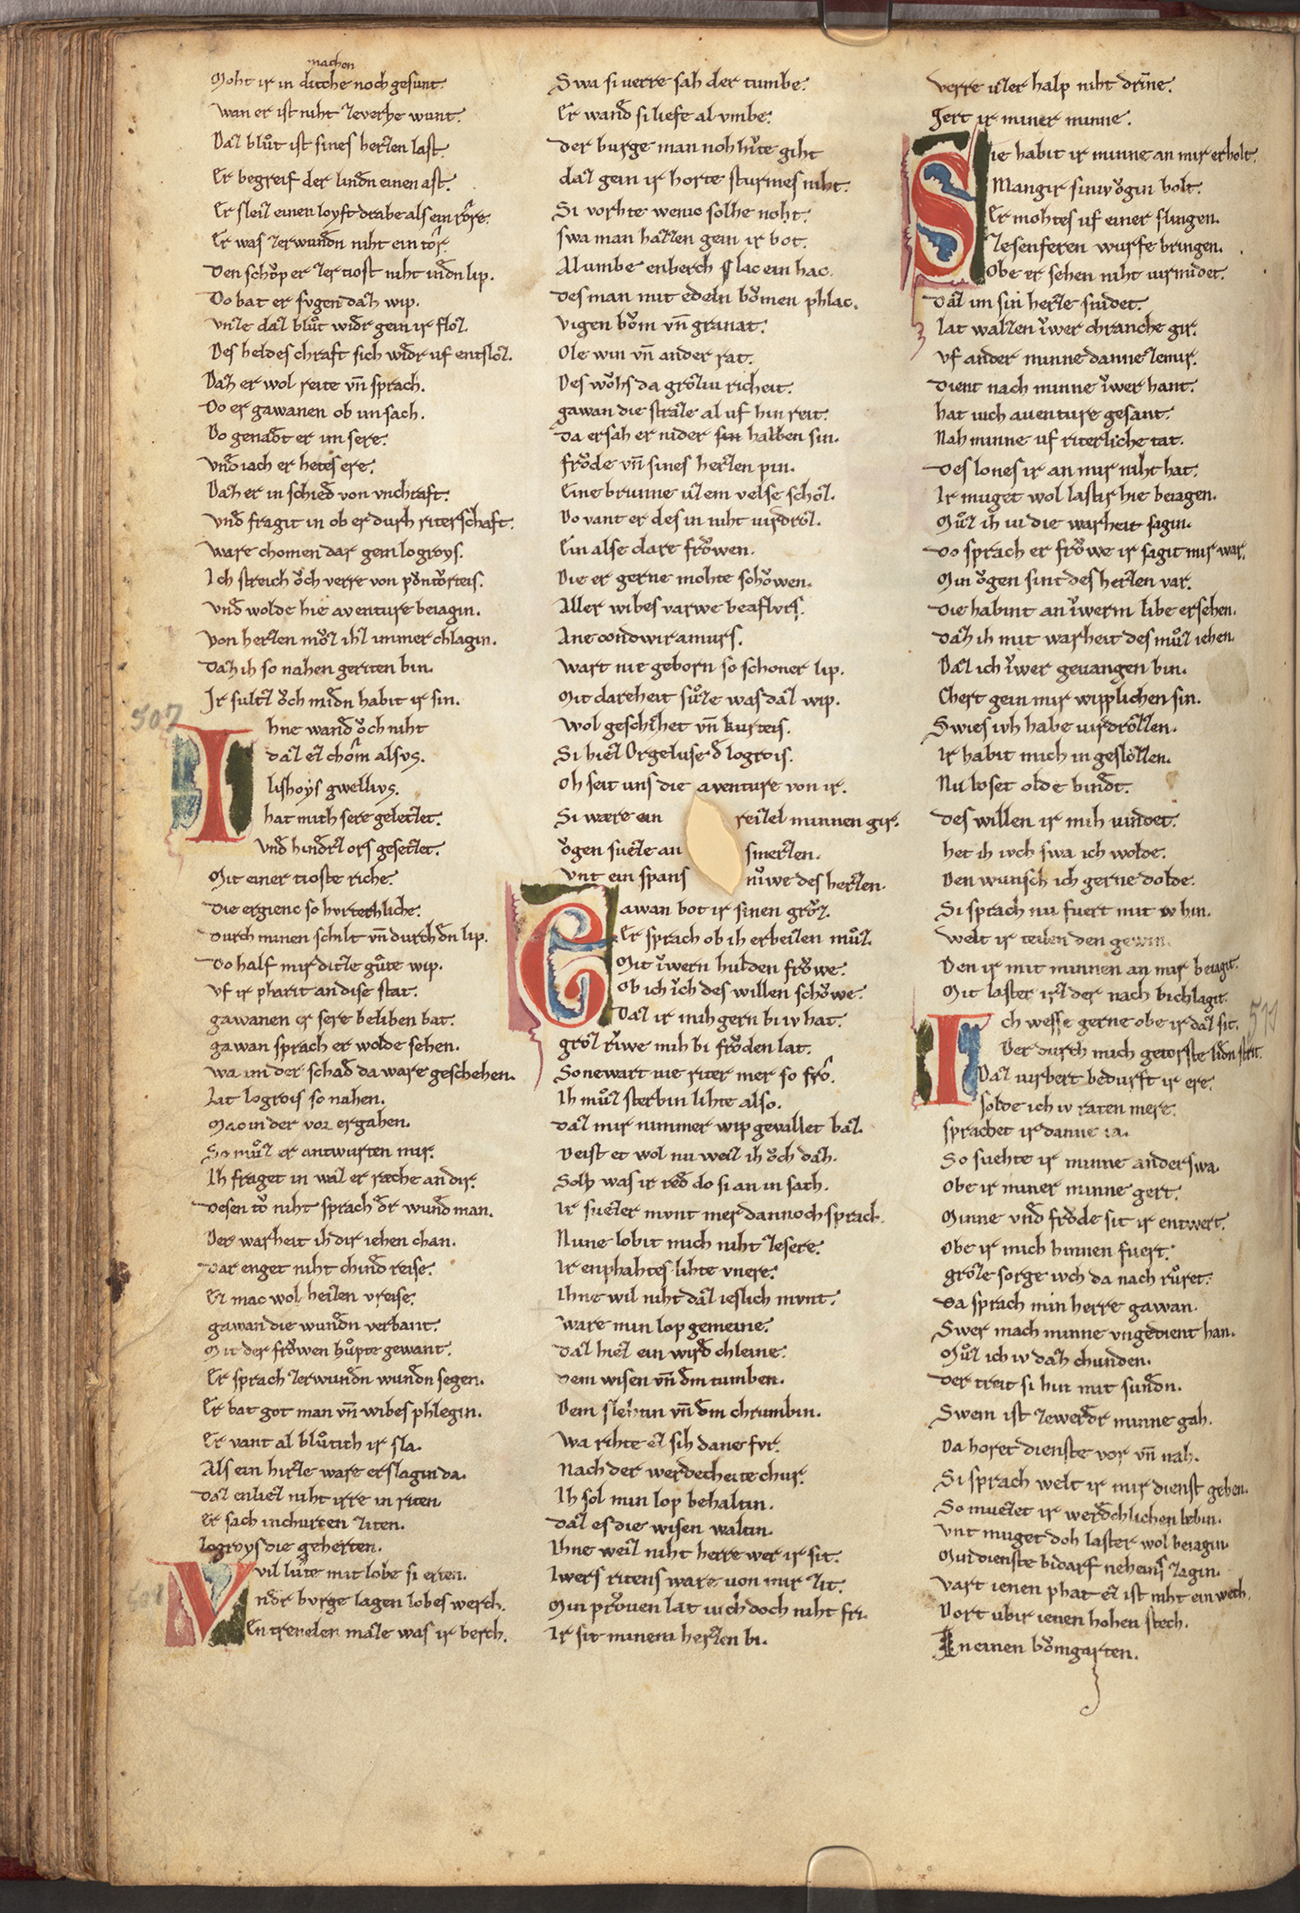 machen
Moht ir in dicche noch gesunt.
wan er ist niht zeverhe wunt.
Daz blůt ist sines herzen last.
Er begreif der lindn einen ast.
Er sleiz einen loyft drabe als ein rôre.
Er was zerwundn niht ein tôr.
Den schöp er zer tiost niht indn lip.
Do bat er sugen dah wip.
unze daz blůt widr gein ir floz.
Des heldes chraft sich widr uf entsloz.
Dah er wol reite vn̄ sprach.
Do er gawanen ob im sach.
Do genadt er im sere.
und iach er hetes ere.
Dah er in schied von vnchraft.
und fragit in ob er durh riterschaft.
ware chomen dar gein logroys.
Ich streich ǒch verre von pǒntǒrteis.
und wolde hie aventure beiagin.
von herzen mǒz ihz immer chlagin.
dah ih so nahen geriten bin.
Ir sultz ǒch midn habit ir sin.
507
Ihne wand ǒch niht
daz ez chôm alsvs.
lishoys gwellivs.
hat mich sere geletzet.
und hindrz ors gesetzet.
Mit einer tioste riche.
die ergienc so hurtechliche.
durch minen schilt vn̄ durch dn lip.
Do half mir ditze gůte wip.
uf ir pharit an dise stat.
gawanen er sere beliben bat.
gawan sprach er wolde sehen.
wa im der schad da ware geschehen.
Lit logrois so nahen.
Mac in der vor ergahen.
So můz er antwurten mir.
Ih fraget in waz er ræche an dir.
desen tǒ niht sprach dr wund man.
Der warheit ih dir iehen chan.
dar enget niht chind reise.
Ez mac wol heizen vreise.
gawan die wundn verbant.
Mit der frǒwen hůpte gewant.
Er sprach zerwundn wundn segen.
Er bat got man vn̄ wibes phlegin.
Er vant al blůtich ir sla.
Als ein hirze ware erslagin da.
daz enliez niht irre in riten.
er sach inchurcen ziten.
logroys die geherten.
Vvil lůte mit lobe si erten.
ndr burge lagen lobes werch.
En trendeln mâze was ir berch.
Swa si verre sah der tumbe.
Er wand si liefe al umbe.
der burge man noh hůte giht
daz gein ir horte sturmes niht.
Si vorhte wenic solhe noht.
swa man hazzen gein ir bot.
Al umbe enberch slac ein hac.
des man mit edeln bǒmen phlac.
vigen bǒm vn̄ granat.
Ole win vn̄ ander rat.
Des wǒhs da grôziu richeit.
gawan die strâze al uf hin reit.
da ersah er nider sin halben sin.
frǒde vn̄ sines herzen pin.
Eine brunne uzem velse schôz.
Do vant er des in niht virdrôz.
Ein alse clare frǒwen.
Die er gerne mohte schǒwen.
Aller wibes varwe beaflvrs.
Ane condwiramurs.
wart nie geborn so schoner lip.
Mit clareheit sůze was daz wip.
wol geschihet vn̄ kurteis.
Si hiez Orgeluse d logrois.
Oh seit uns die aventure von ir.
Si wære ein reizel minnen gir.
ǒgen sueze an smerzen.
unt ein spans nůwe des herzen.
Gawan bot ir sinen grǒz.
Er sprach ob ih erbeizen můz.
Mit iwern hulden frǒwe.
Ob ich ich des willen schǒwe.
Daz ir mih gern bi iv hat.
grôz riwe mih bi frǒden lat.
Sone wart nie riter mer so fro.
Ih můz sterbin lihte also.
daz mir nimmer wip gevallet baz.
Deist et wol nu weiz ih ǒch dah.
Solh was ir red do si an in sach.
Ir suezer munt mer dannoch sprach.
Nune lobit mich niht zesere.
Ir enphahtes lihte unere.
Ihne wil niht daz ieslich munt.
ware min lop gemeine.
daz hiez ein wird chleine.
dem wisen vn̄ dm tumben.
Dem slehtin vn̄ dm chrumbin.
wa rihte ez sih dane fur.
Nach der werdecheite chur.
Ih sol min lop behaltin.
daz es die wisen waltin.
Ihne weiz niht herre wer ir sit.
Iwers ritens ware von mir zit.
Min prǒuen lat iuch doch niht fri.
Ir sit minem herzen bi.
verre uzer halp niht drinne.
Gert ir miner minne.
Sie habit ir minne an mir erholt.
Mangir sinw ǒgin bolt.
Er mohtes uf einer slingen.
zesenferen wurfe bringen.
Obe er sehen niht virmidet.
daz im sin herze snidet.
lat walzen iwer chranche gir.
uf ander minne danne zemir.
dient nach minne iwer hant.
hat iuch aventure gesant.
Nah minne uf riterliche tat.
des lones ir an mir niht hat.
Ir muget wol lastir hie beiagen.
Můz ih iu die warheit sagin.
do sprach er frǒwe ir sagit mir war.
Min ǒgen sint des herzen var.
die habint an iwerm libe ersehen.
dah ih mit warheit des můz iehen.
Daz ich iwer gevangen bin.
Chert gein mir wiplichen sin.
Swies ivh habe virdrozzen.
Ir habit mich in geslozzen.
Nu loset olde bindt.
des willen ir mih vindet.
het ih ivch swa ich wolde.
Den wunsch ich gerne dolde.
Si sprach nu fuert mit iv hin.
welt ir teilen den gewin.
Den ir mit minnen an mir beiagit.
Mit laster irz der nach bichlagit.
510
Ich wesse gerne obe ir daz sit.
Der durch mich getorste lidn strit.
Daz virbert bedurft ir ere.
solde ich iv raten mere.
sprachet ir danne ia.
So suehte ir minne anderswa.
Obe ir miner minne gert.
Minne und frǒde sit ir entwert.
Obe ir mich hinnen fuert.
grôze sorge ivch da nach růret.
Da sprach min herre gawan.
Swer mach minne ungedient han.
Můz ich iv dah chunden.
der treit si hin mit sundn.
Swem ist zewerdr minne gah.
Da horet dienste vor vn̄ nah.
Si sprach welt ir mir dienst geben.
So muezet ir werdchlichen lebin.
unt muget doh laster wol beiagin.
Min dienste bidarf neheins zagin.
vart ienen phat ez ist niht ein wech.
Dort ubir ienen hohen stech.
In einen bǒmgarten.